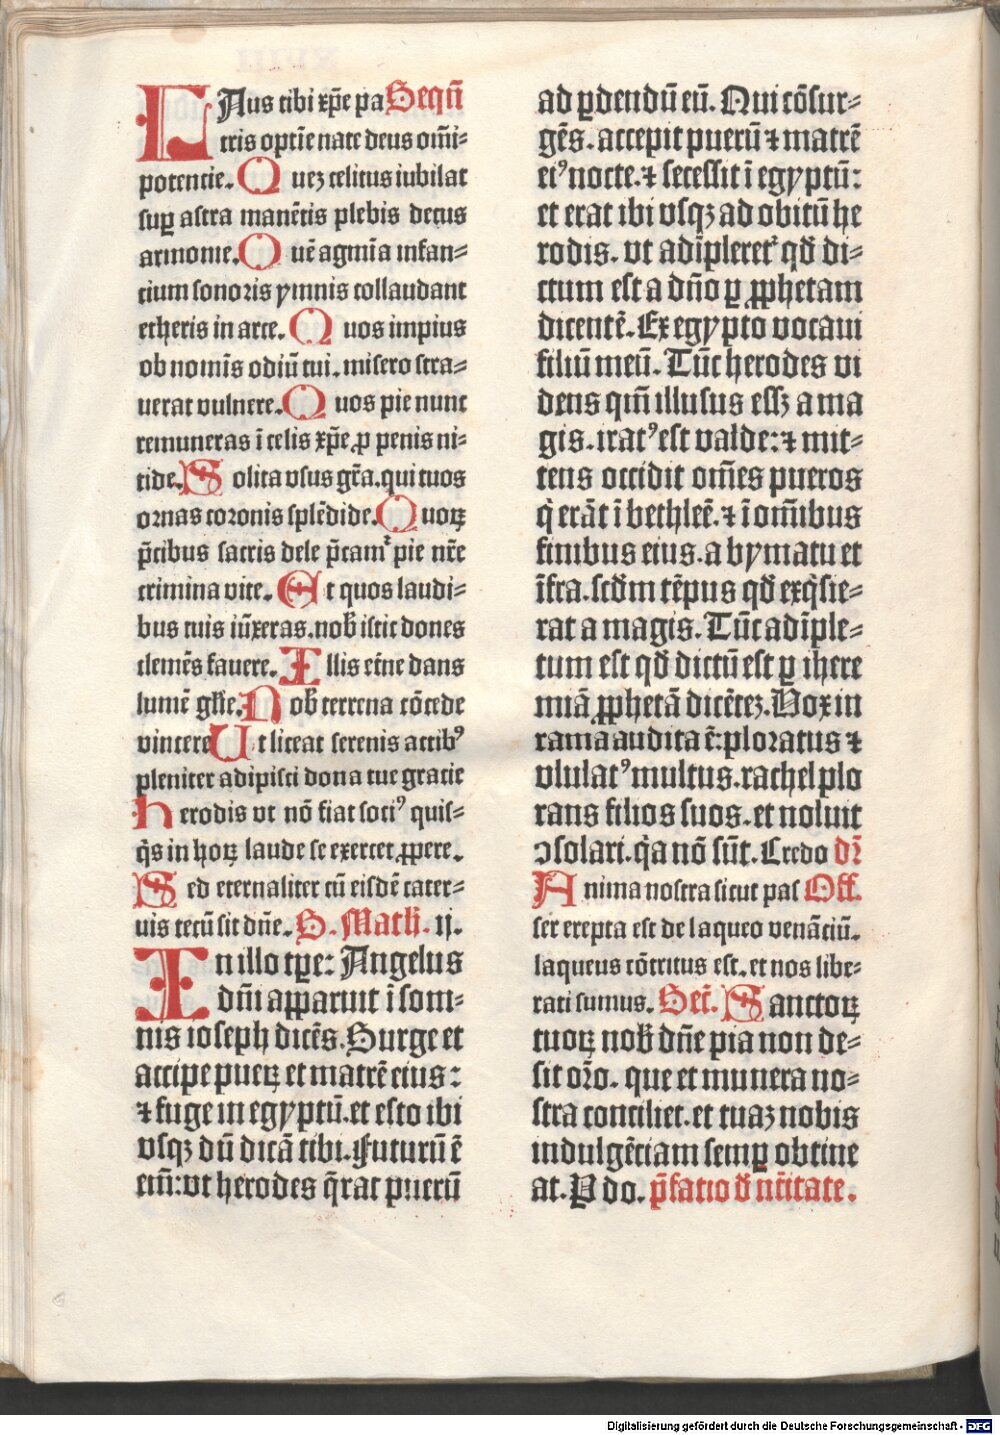 LAus tibi xp̄e pa Sequn̄
tris optīe nate deus om̄i⸗
potencie. Q uez celitus iubilat
suꝑ astra manētis plebis decus
armonie. Q uē agmīa infan⸗
cium sonoris ymnis collaudant
etheris in arce. Q uos impius
ob nomīs odiū tui. misero stra⸗
uerat vulnere. Q uos pie nunc
remuneras ī celis xp̄e ꝓ penis ni⸗
tide. S olita vsus gr̄a. qui tuos
ornas coronis splēdide. Q uoꝝ
p̄cibus sacris dele p̄camᷣ pie nr̄e
crimina vite. E t quos laudi⸗
bus tuis iūxeras. nob̄ istic dones
clemēs fauere. I llis etīne dans
lumē gl̄ie. N ob̄ terrena cōcede
vincere U t liceat serenis actibꝰ
pleniter adipisci dona tue gracie
H erodis vt nō fiat sociꝰ quis⸗
q̇s in hoꝝ laude se exercet ꝓpere.
S ed eternaliter cū eisdē cater⸗
uis tecū sit dn̄e. S. Math̄. ij.
In illo tꝑe: Angelus
dn̄i apparuit ī som⸗
nis ioseph dicēs. Surge et
accipe pueꝝ et matrē eius:
⁊ fuge in egyptū. et esto ibi
vsqꝫ dū dicā tibi. Futurū ē
eni̅: vt herodes q̄rat puerū
ad ꝑdendū eū. Qui cōsur⸗
gēs. accepit puerū ⁊ matrē
eiꝰ nocte. ⁊ secessit ī egyptū:
et erat ibi vsqꝫ ad obitū he
rodis. vt adīpleretᷣ qd̄ di⸗
ctum est a dn̄o ꝑ ꝓphetam
dicentē. Ex egypto vocaui
filiū meū. Tūc herodes vi
dens qm̄ illusus essꝫ a ma
gis. iratꝰ est valde: ⁊ mit⸗
tens occidit om̄es pueros
q̇ erāt ī bethleē. ⁊ ī om̄ibus
finibus eius. a bymatu et
īfra. scd̄m tēpus qd̄ exq̇sie⸗
rat a magis. Tūc adīple⸗
tum est qd̄ dictū est ꝑ ihere
miā ꝓphetā dicētez. Vox in
rama audita ē: ploratus ⁊
vlulatꝰ multus. rachel plo
rans filios suos. et noluit
ↄsolari. q̇a nō sūt. Credo dr̄
A nima nostra sicut pas Off.
ser erepta est de laqueo venāciū.
laqueus cōtritus est. et nos libe⸗
rati sumus. Sec̄. S anctoꝝ
tuoꝝ nob̄ dn̄e pia non de⸗
sit or̄o. que et munera no⸗
stra conciliet. et tuaz nobis
indulgēciam semꝑ obtine
at. P do. p̄facio d̄ nr̄itate.
Digitalisierung gefördert durch die Deutsche Forschungsgemeinschaft - DFG